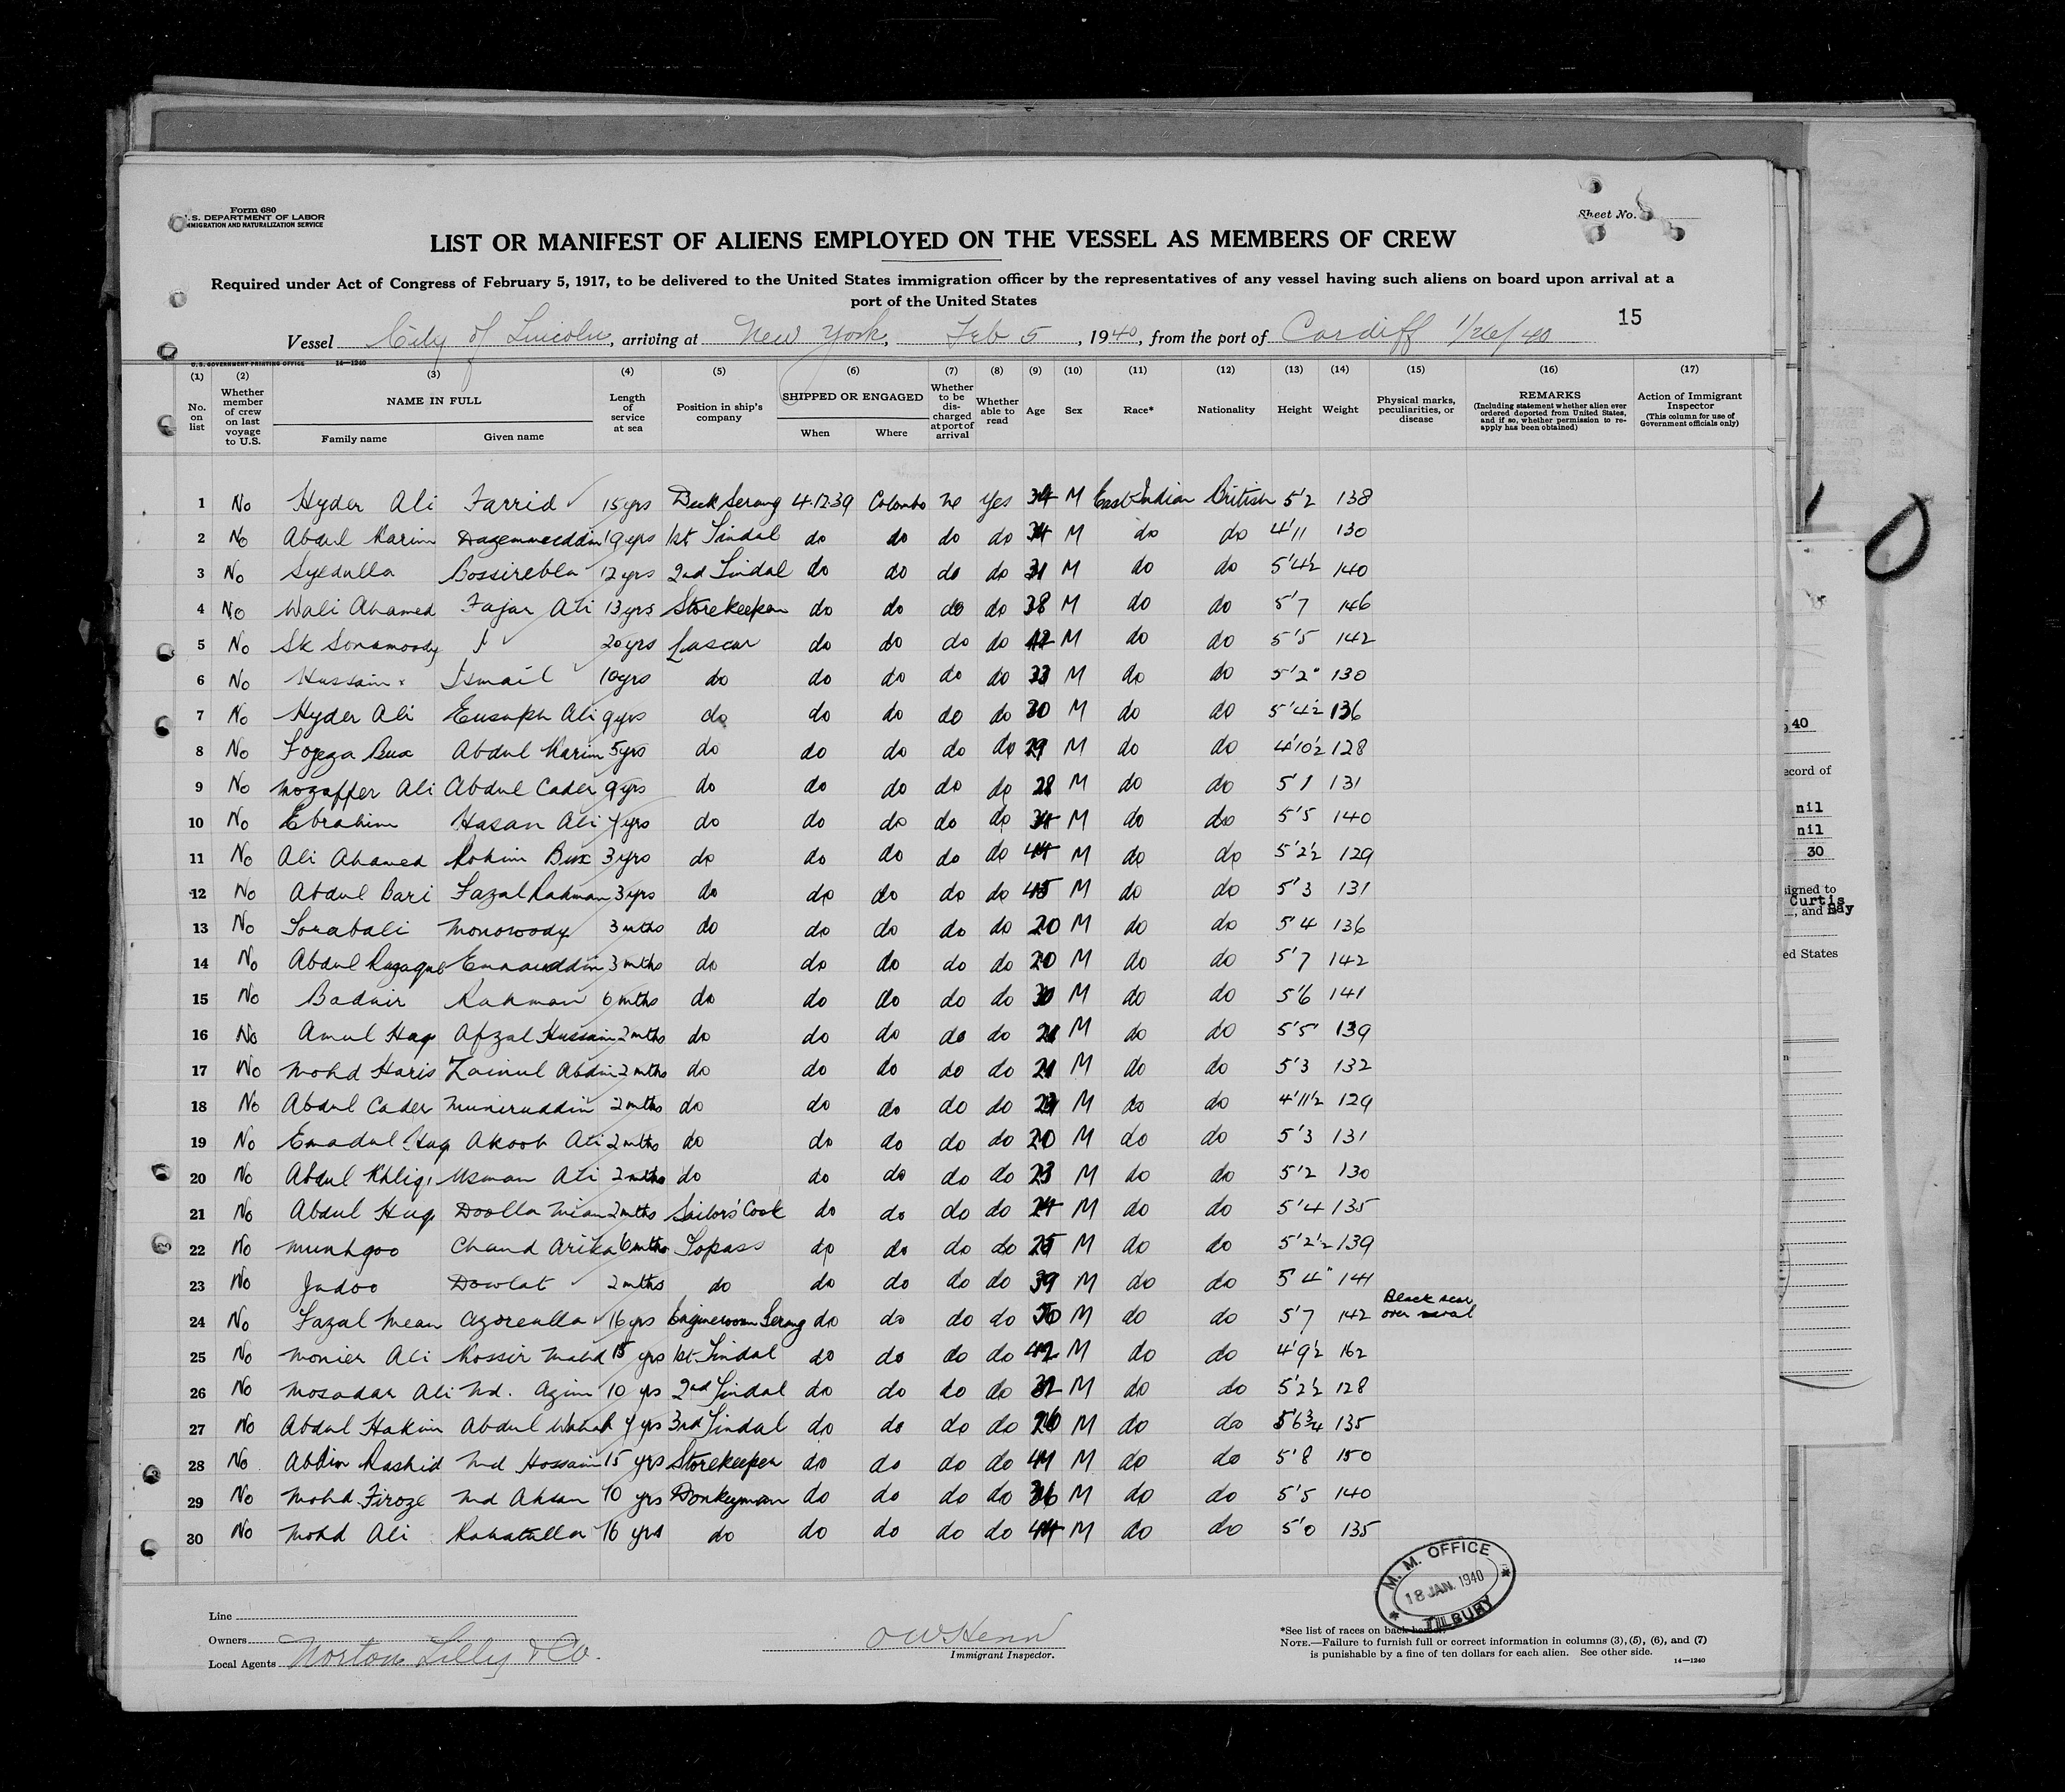 Form 680
U.S. DEPARTMENT OF LABOR
IMMIGRATION AND NATURALIZATION SERVICE
Sheet No.
LIST OR MANIFEST OF ALIENS EMPLOYED ON THE VESSEL AS MEMBERS OF CREW
Required under Act of Congress of February 5, 1917, to be delivered to the United States immigration officer by the representatives of any vessel having such aliens on board upon arrival at a
port of the United States
15
Vessel City of Lincoln, arriving at New York, Feb 5, 1940, from the port of Cardiff 1/26/40
U.S. GOVERNMENT PRINTING OFFICE 14—1240
(1) (2) (3) (4) (5) (6) (7) (8) (9) (10) (11) (12) (13) (14) (15) (16) (17)
No. on list Whether member of crew on last voyage to U.S. NAME IN FULL Family name Given name Length of service at sea Position in ship's company SHIPPED OR ENGAGED When Where Whether to be discharged at port of arrival Whether able to read Age Sex Race* Nationality Height Weight Physical marks, peculiarities, or disease REMARKS (Including statement whether alien ever ordered deported from United States, and if so, whether permission to re-apply has been obtained) Action of Immigrant Inspector (This column for use of Government officials only)
1 No Hyder Ali Farrid 15 yrs Deck Serang 4.12.39 Colombo No Yes 34 M East Indian British 5'2 138
2 No Abdul Karim Dagemmeddin 19 yrs 1st Tindal do do do do 34 M do do 4'11 130
3 No Syedulla Bossirebla 12 yrs 2nd Tindal do do do do 31 M do do 5'4½ 140
4 No Wali Ahamed Fajar Ali 13 yrs Storekeeper do do do do 38 M do do 5'7 146
5 No Sk Sonamoody 20 yrs Lascar do do do do 42 M do do 5'5 142
6 No Hussain Ismail 10 yrs do do do do do 33 M do do 5'2" 130
7 No Hyder Ali Eusuph Ali 9 yrs do do do do do 30 M do do 5'4½ 136
8 No Fogega Bux Abdul Karim 5 yrs do do do do do 29 M do do 4'10½ 128
9 No Mozaffer Ali Abdul Cader 9 yrs do do do do do 28 M do do 5'1 131
10 No Ebrahim Hasan Ali 7 yrs do do do do do 34 M do do 5'5 140
11 No Ali Ahamed Rohim Bux 3 yrs do do do do do 44 M do do 5'2½ 129
12 No Abdul Bari Fazal Rahman 3 yrs do do do do do 45 M do do 5'3 131
13 No Sorabali Monowody 3 mths do do do do do 20 M do do 5'4 136
14 No Abdul Razaque Emnauddin 3 mths do do do do do 20 M do do 5'7 142
15 No Badnir Rahman 6 mths do do do do do 30 M do do 5'6 141
16 No Amul Haq Afzal Hussain 2 mths do do do do do M do do 5'5 139
17 No Mohd Haris Zainul Abdin 2 mths do do do do do 21 M do do 5'3 132
18 No Abdul Cader Muniruddin 2 mths do do do do do M do do 4'11½ 129
19 No Emadul Haq Akoob Ali 2 mths do do do do do 20 M do do 5'3 131
20 No Abdul Khliq Usman Ali 2 mths do do do do do 23 M do do 5'2 130
21 No Abdul Huq Doolla Mian 2 mths Sailors' Cook do do do do 24 M do do 5'4 135
22 No Munhgoo Chand Arika 6 mths Topass do do do do 25 M do do 5'2½ 139
23 No Jadoo Dowlat 2 mths do do do do do 39 M do do 5'4" 141
24 No Fazal Mean Azoreulla 16 yrs Engineroom Serang do do do do 50 M do do 5'7 142 Black scar over
25 No Monier Ali Kossir Mohd 15 yrs 1st Tindal do do do do 42 M do do 4'9½ 162
26 No Mosadar Ali Md. Azim 10 yrs 2nd Tindal do do do do 32 M do do 5'2½ 128
27 No Abdul Hakim Abdul Wahab 4 yrs 3rd Tindal do do do do 26 M do do 5'6¾ 135
28 No Abdin Rashid Md Hossain 15 yrs Storekeeper do do do do 41 M do do 5'8 150
29 No Mohd Firoze Md Ahsan 10 yrs Donkeyman do do do do 36 M do do 5'5 140
30 No Mohd Ali Rahatulla 16 yrs do do do do do 44 M do do 5'0 135
Line
Owners
Local Agents Norton Lilly & Co.
Immigrant Inspector.
M. M. OFFICE
18 JAN. 1940
TILBURY
*See list of races on back hereof.
NOTE.—Failure to furnish full or correct information in columns (3), (5), (6), and (7)
is punishable by a fine of ten dollars for each alien. See other side. 14—1240
40
ecord of
nil
nil
30
signed to
Curtis
, and Bay
ed States